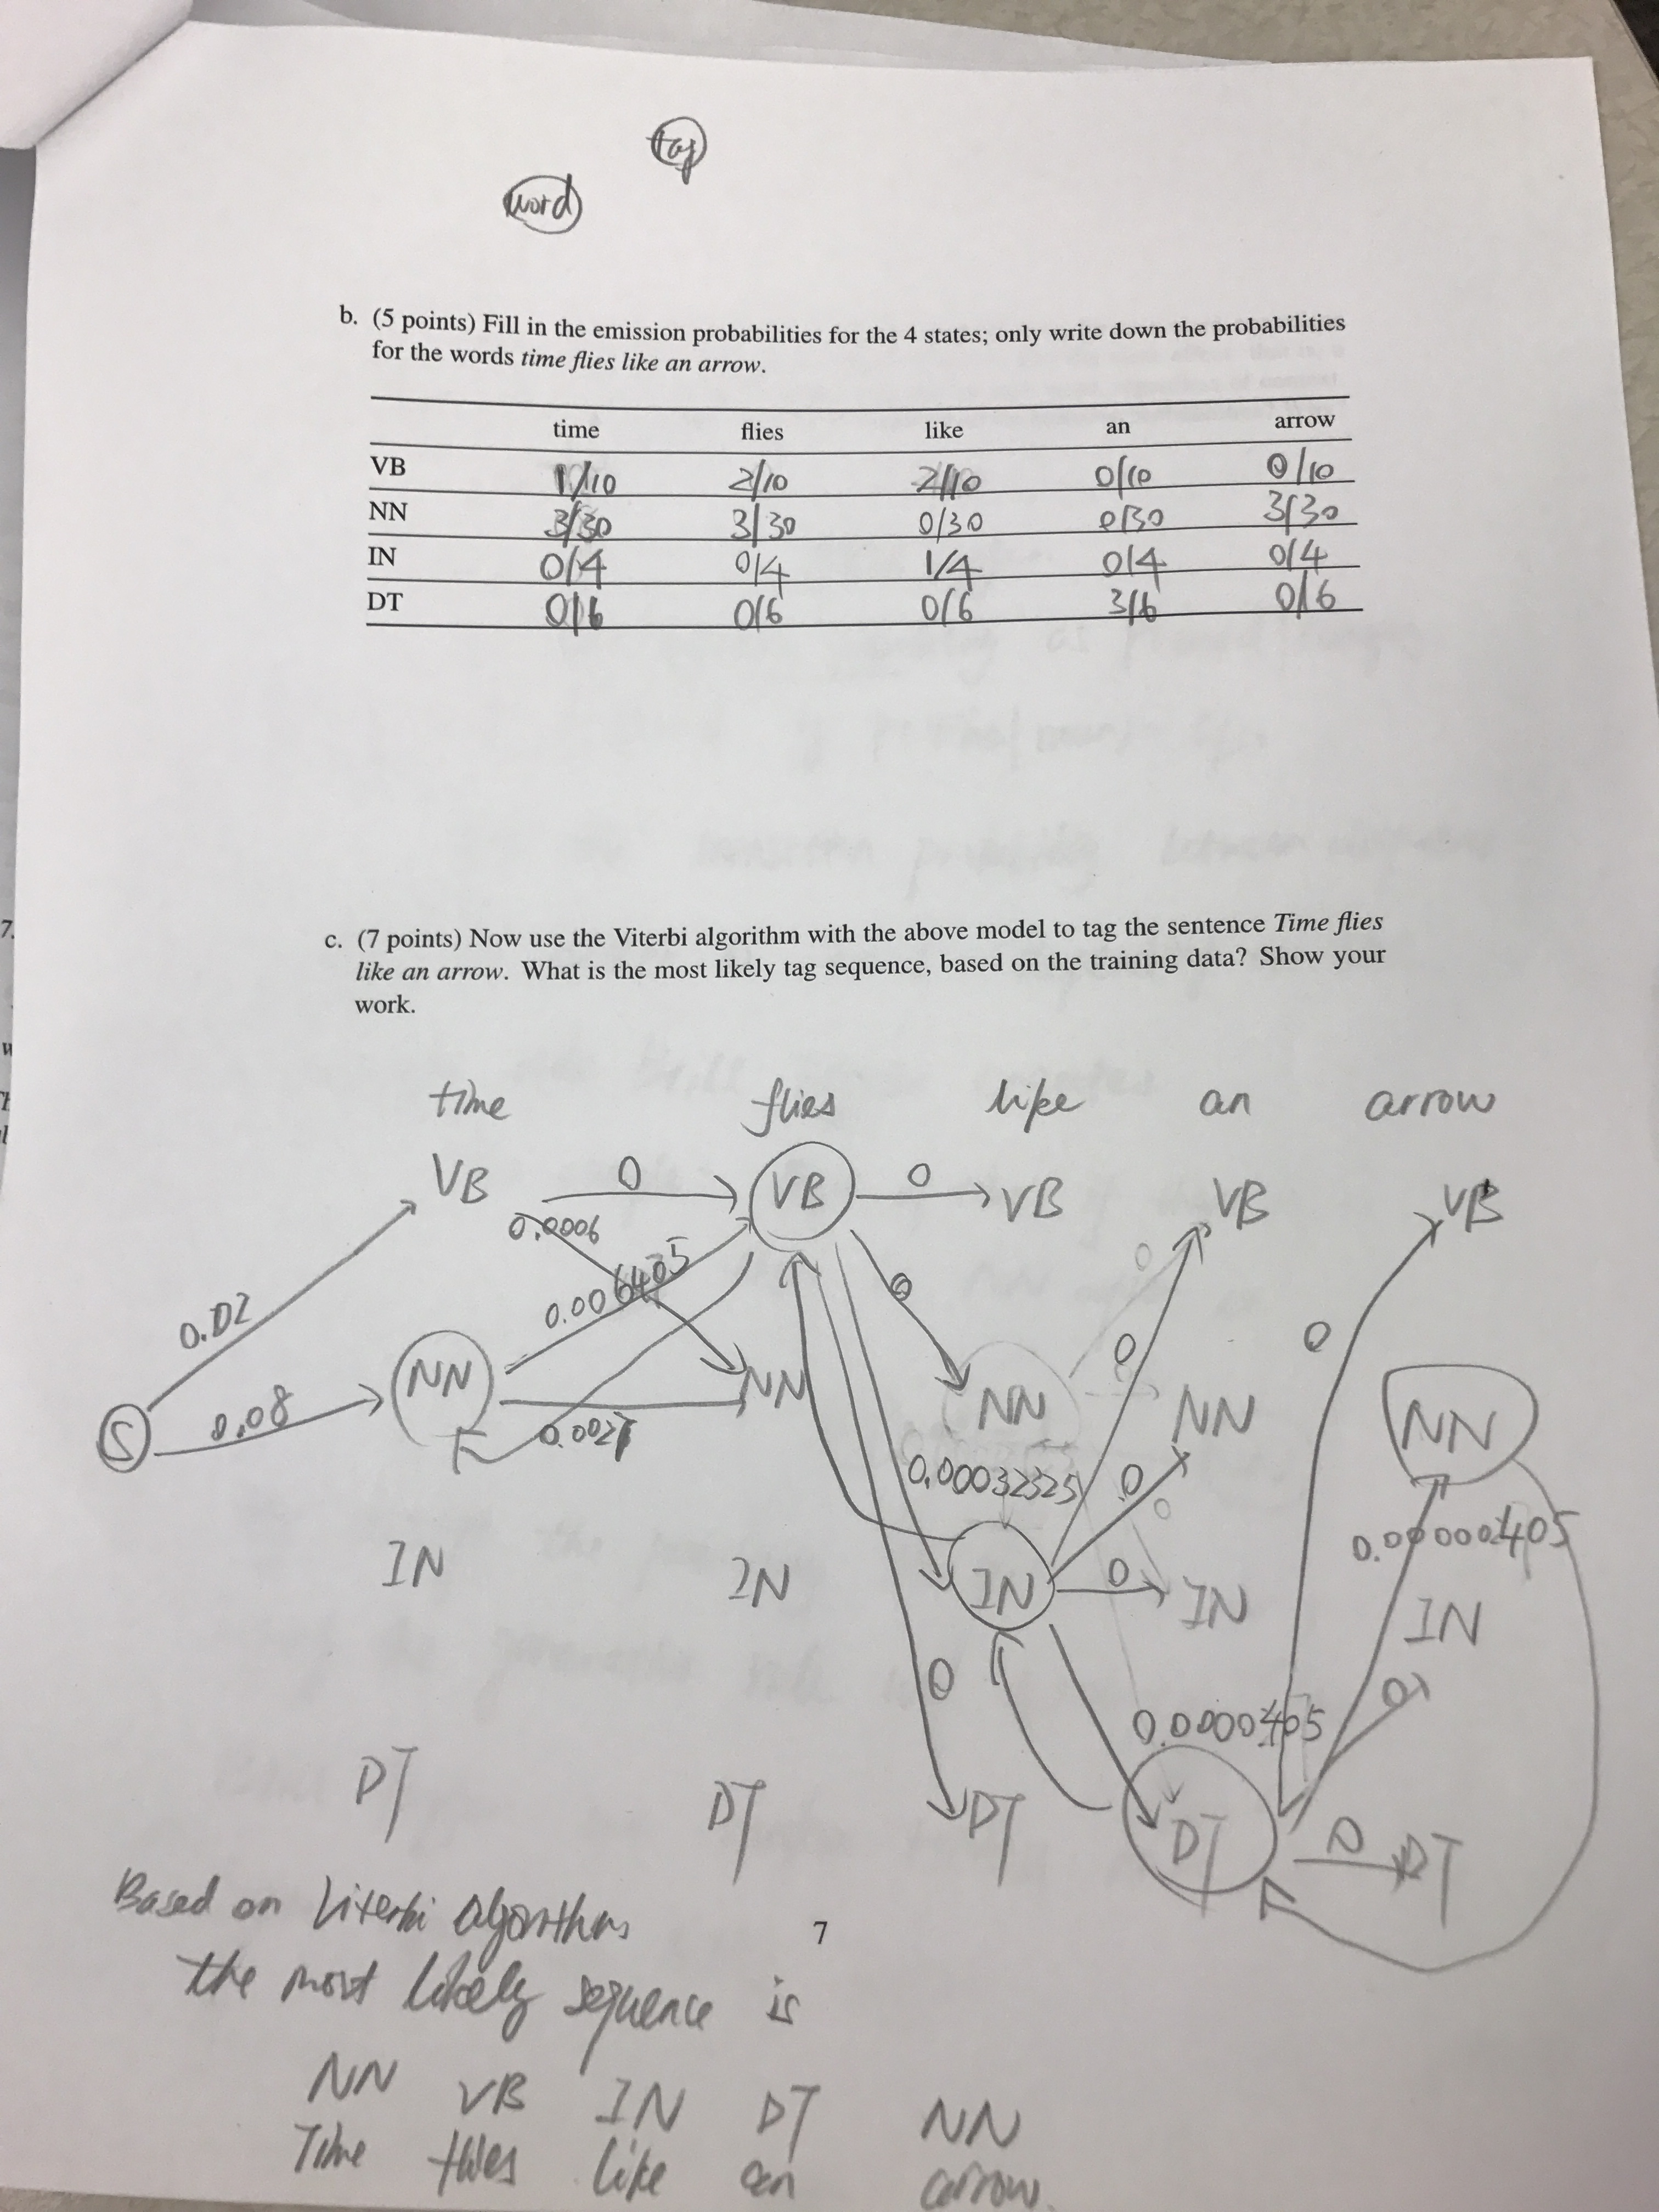 tag
word
b. (5 points) Fill in the emission probabilities for the 4 states; only write down the probabilities
for the words time flies like an arrow.
time flies like an arrow
VB 1/10 2/10 2/10 0/10 0/10
NN 3/30 3/30 0/30 0/30 3/30
IN 0/4 0/4 1/4 0/4 0/4
DT 0/6 0/6 0/6 3/6 0/6
7.
c. (7 points) Now use the Viterbi algorithm with the above model to tag the sentence Time flies
like an arrow. What is the most likely tag sequence, based on the training data? Show your
work.
time flies like an arrow
VB 0 VB 0 VB VB VB
0.0006
0.02 0.006405 0 0 0 0
S 0.08 NN 0.0027 NN NN NN NN
0.00032325 0 0 0.00000405
IN IN IN 0 IN IN
0 0.0000405 0
DT DT DT DT 0 DT
Based on Viterbi algorithm
7
the most likely sequence is
NN VB IN DT NN
Time flies like an arrow.